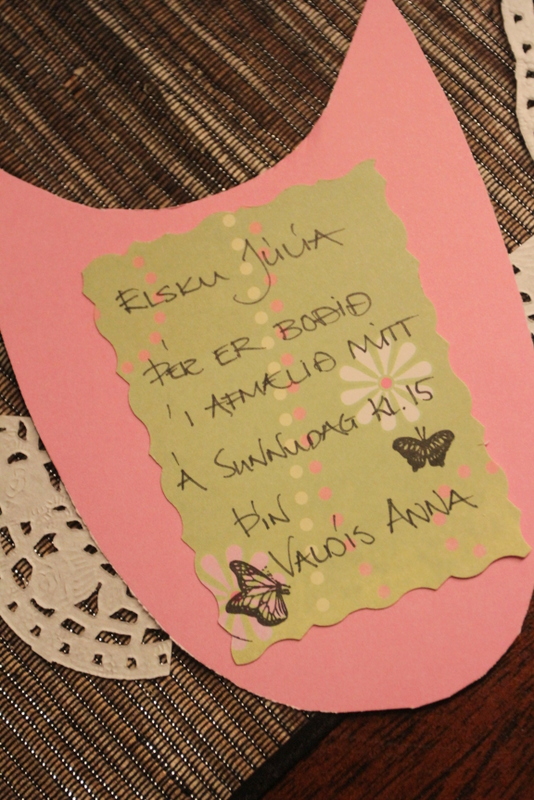 ELSKU JÚLÍA
ÞÉR ER BOÐIÐ
Í AFMÆLIÐ MITT
Á SUNNUDAG KL.15
ÞÍN
VALDÍS ANNA